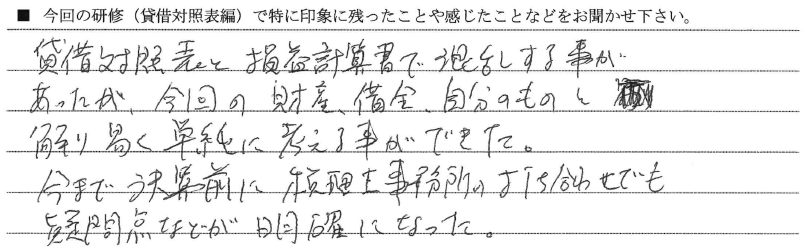 ■ 今回の研修（貸借対照表編）で特に印象に残ったことや感じたことなどをお聞かせ下さい。
貸借対照表と損益計算書で混乱する事が
あったが、今回の財産、借金、自分のものと
解り易く単純に考える事ができた。
今まで決算前に税理士事務所の打ち合わせでも
疑問点などが明確になった。